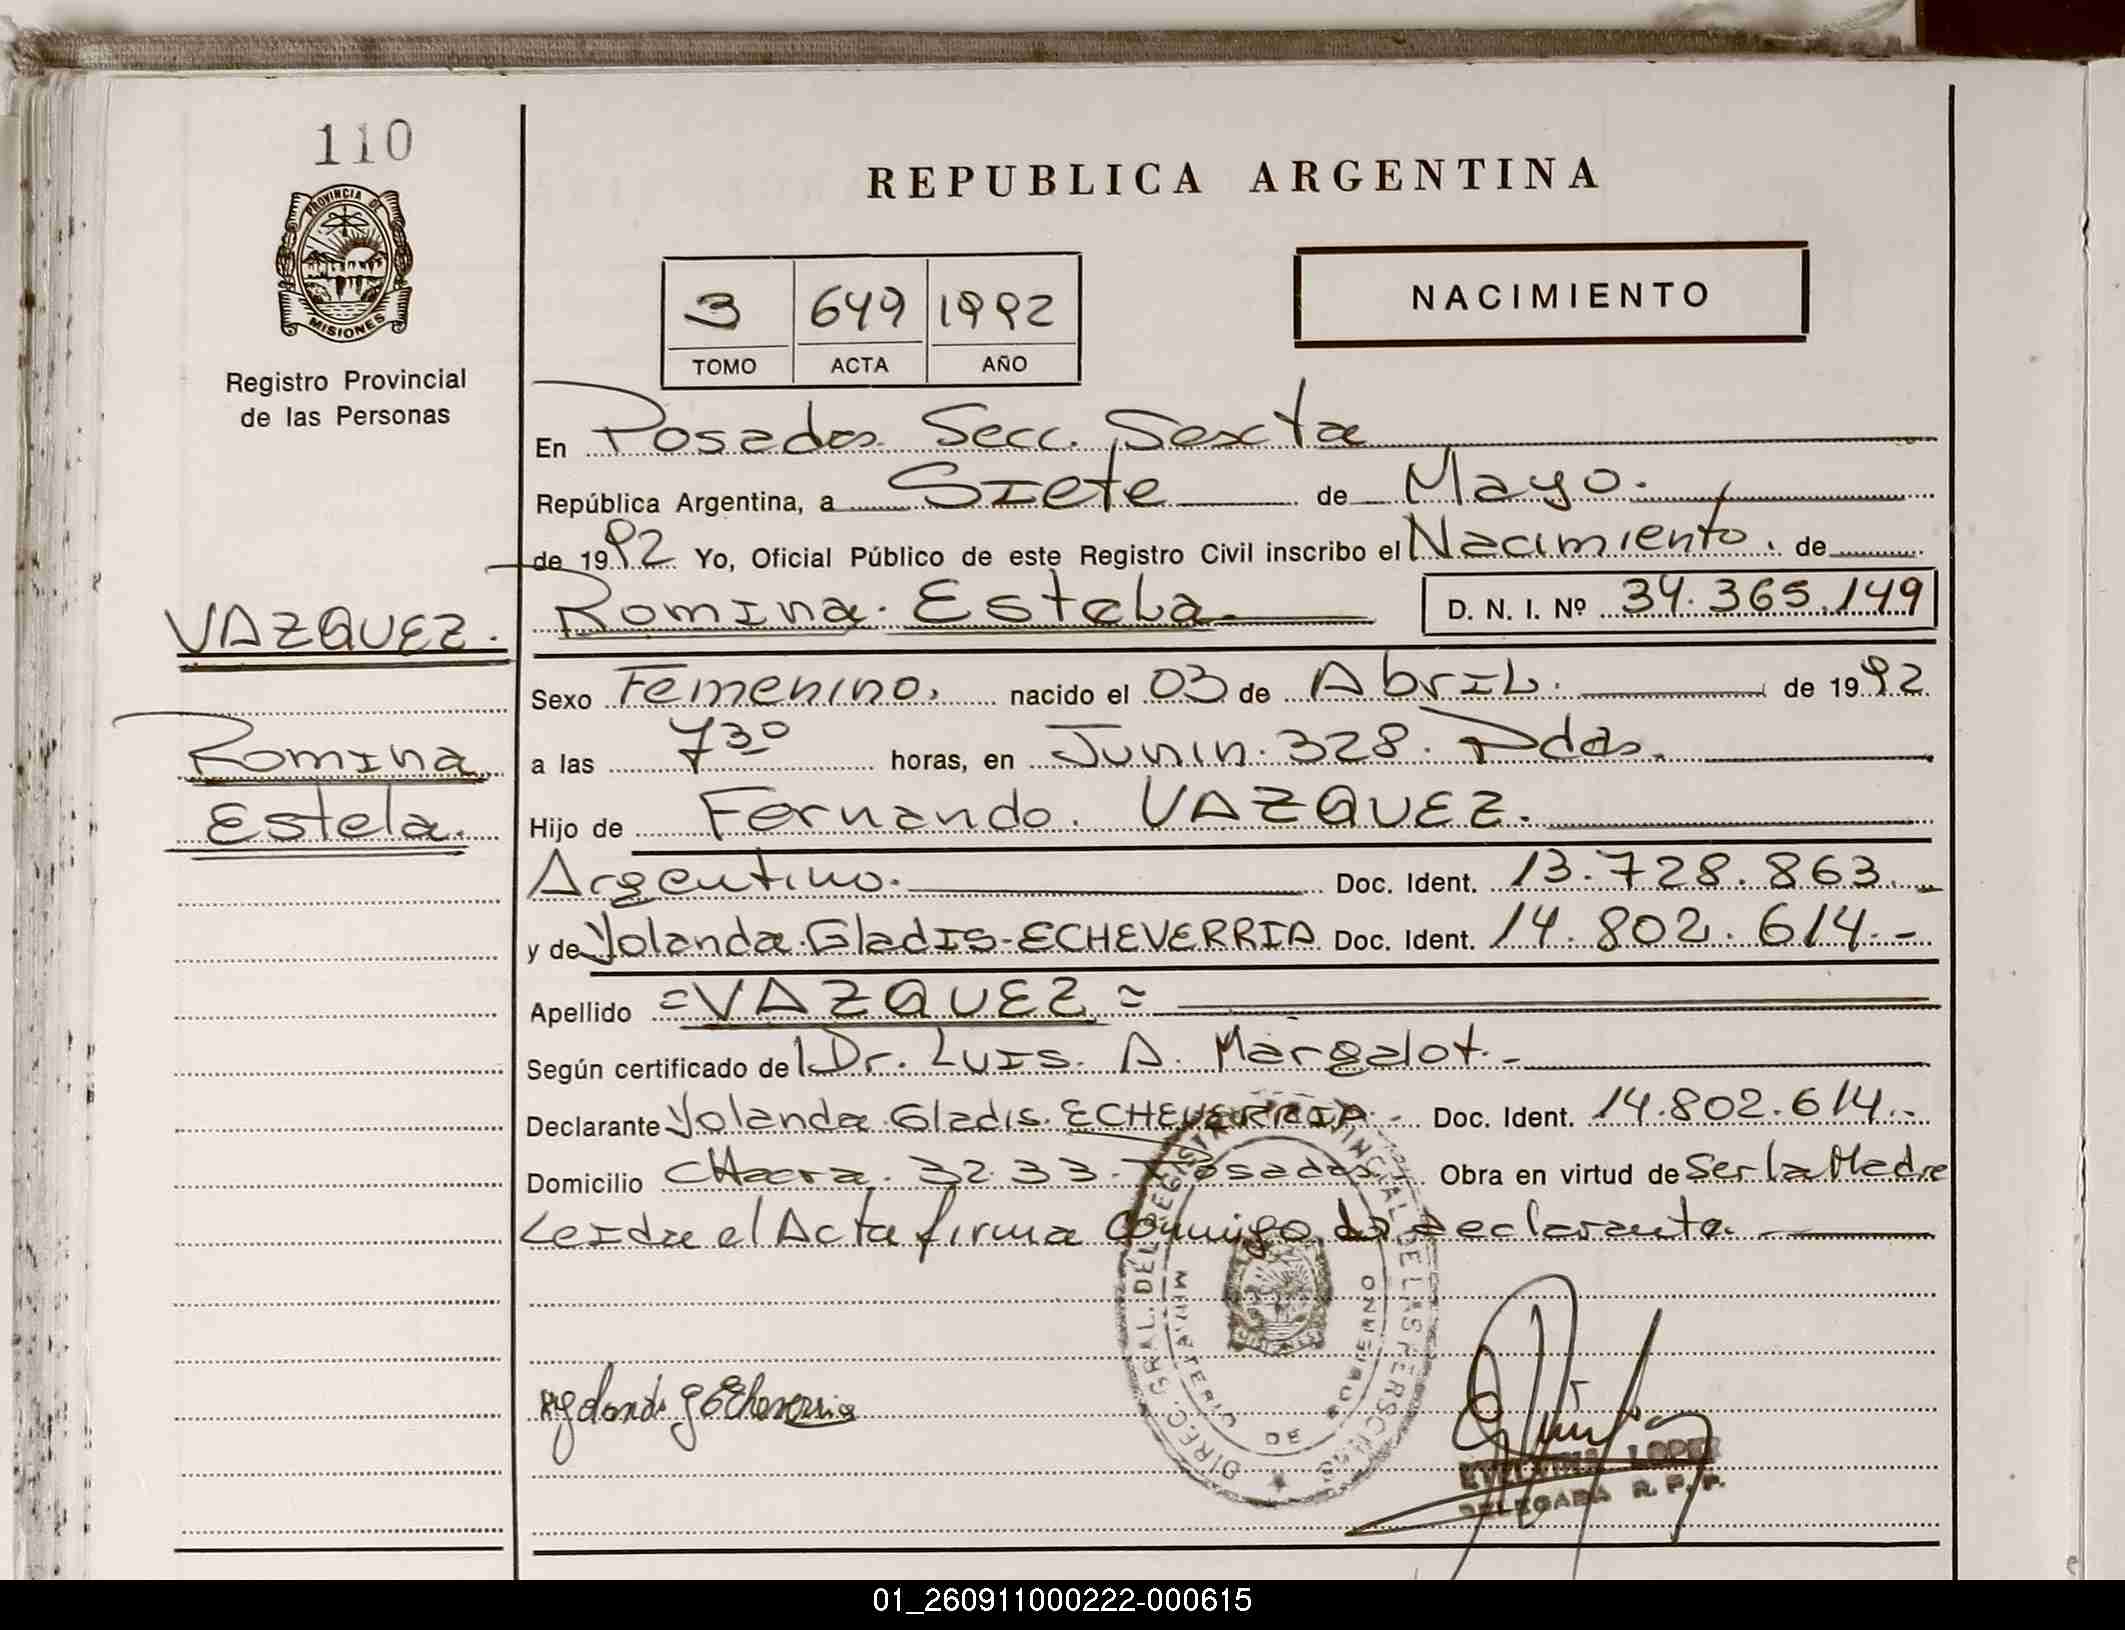 110
PROVINCIA DE
MISIONES
Registro Provincial
de las Personas
REPUBLICA ARGENTINA
3 649 1992
TOMO ACTA AÑO
NACIMIENTO
En Posadas Secc. Sexta
República Argentina, a Siete de Mayo.
de 1992 Yo, Oficial Público de este Registro Civil inscribo el Nacimiento. de
VAZQUEZ.
Romina Estela
Romina. Estela. D. N. I. Nº 34.365.149
Sexo Femenino. nacido el 03 de Abril. de 1992
a las 7 30 horas, en Junin. 328. Pdas.
Hijo de Fernando. VAZQUEZ.
Argentino. Doc. Ident. 13.728.863.
y de Yolanda. Gladis-ECHEVERRIA Doc. Ident. 14.802.614.-
Apellido =VAZQUEZ=
Según certificado de Dr. Luis. A. Margalot.-
Declarante Yolanda Gladis. ECHEVERRIA.- Doc. Ident. 14.802.614.-
Domicilio CHacra. 32.33. Posadas Obra en virtud de Ser la Madre
Leida el Acta firma conmigo la declarante.
DIREC. GRAL. DEL REGISTRO PROVINCIAL DE LAS PERSONAS
MINISTERIO DE GOBIERNO
Yolanda G Echeverria
LOPEZ
DELEGADA R. P. P.
01_260911000222-000615